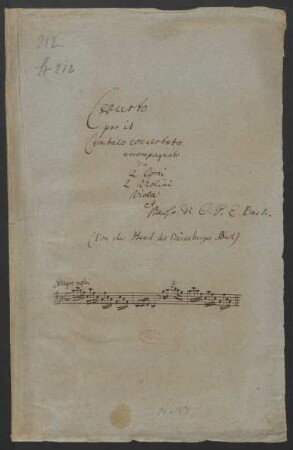 212
Concerto
per il
Cembalo concertato
accompagnato
da
2 Corni
2 Violini
Viola
e
Basso di C. P. E. Bach.
(Von der Hand des
Allegro